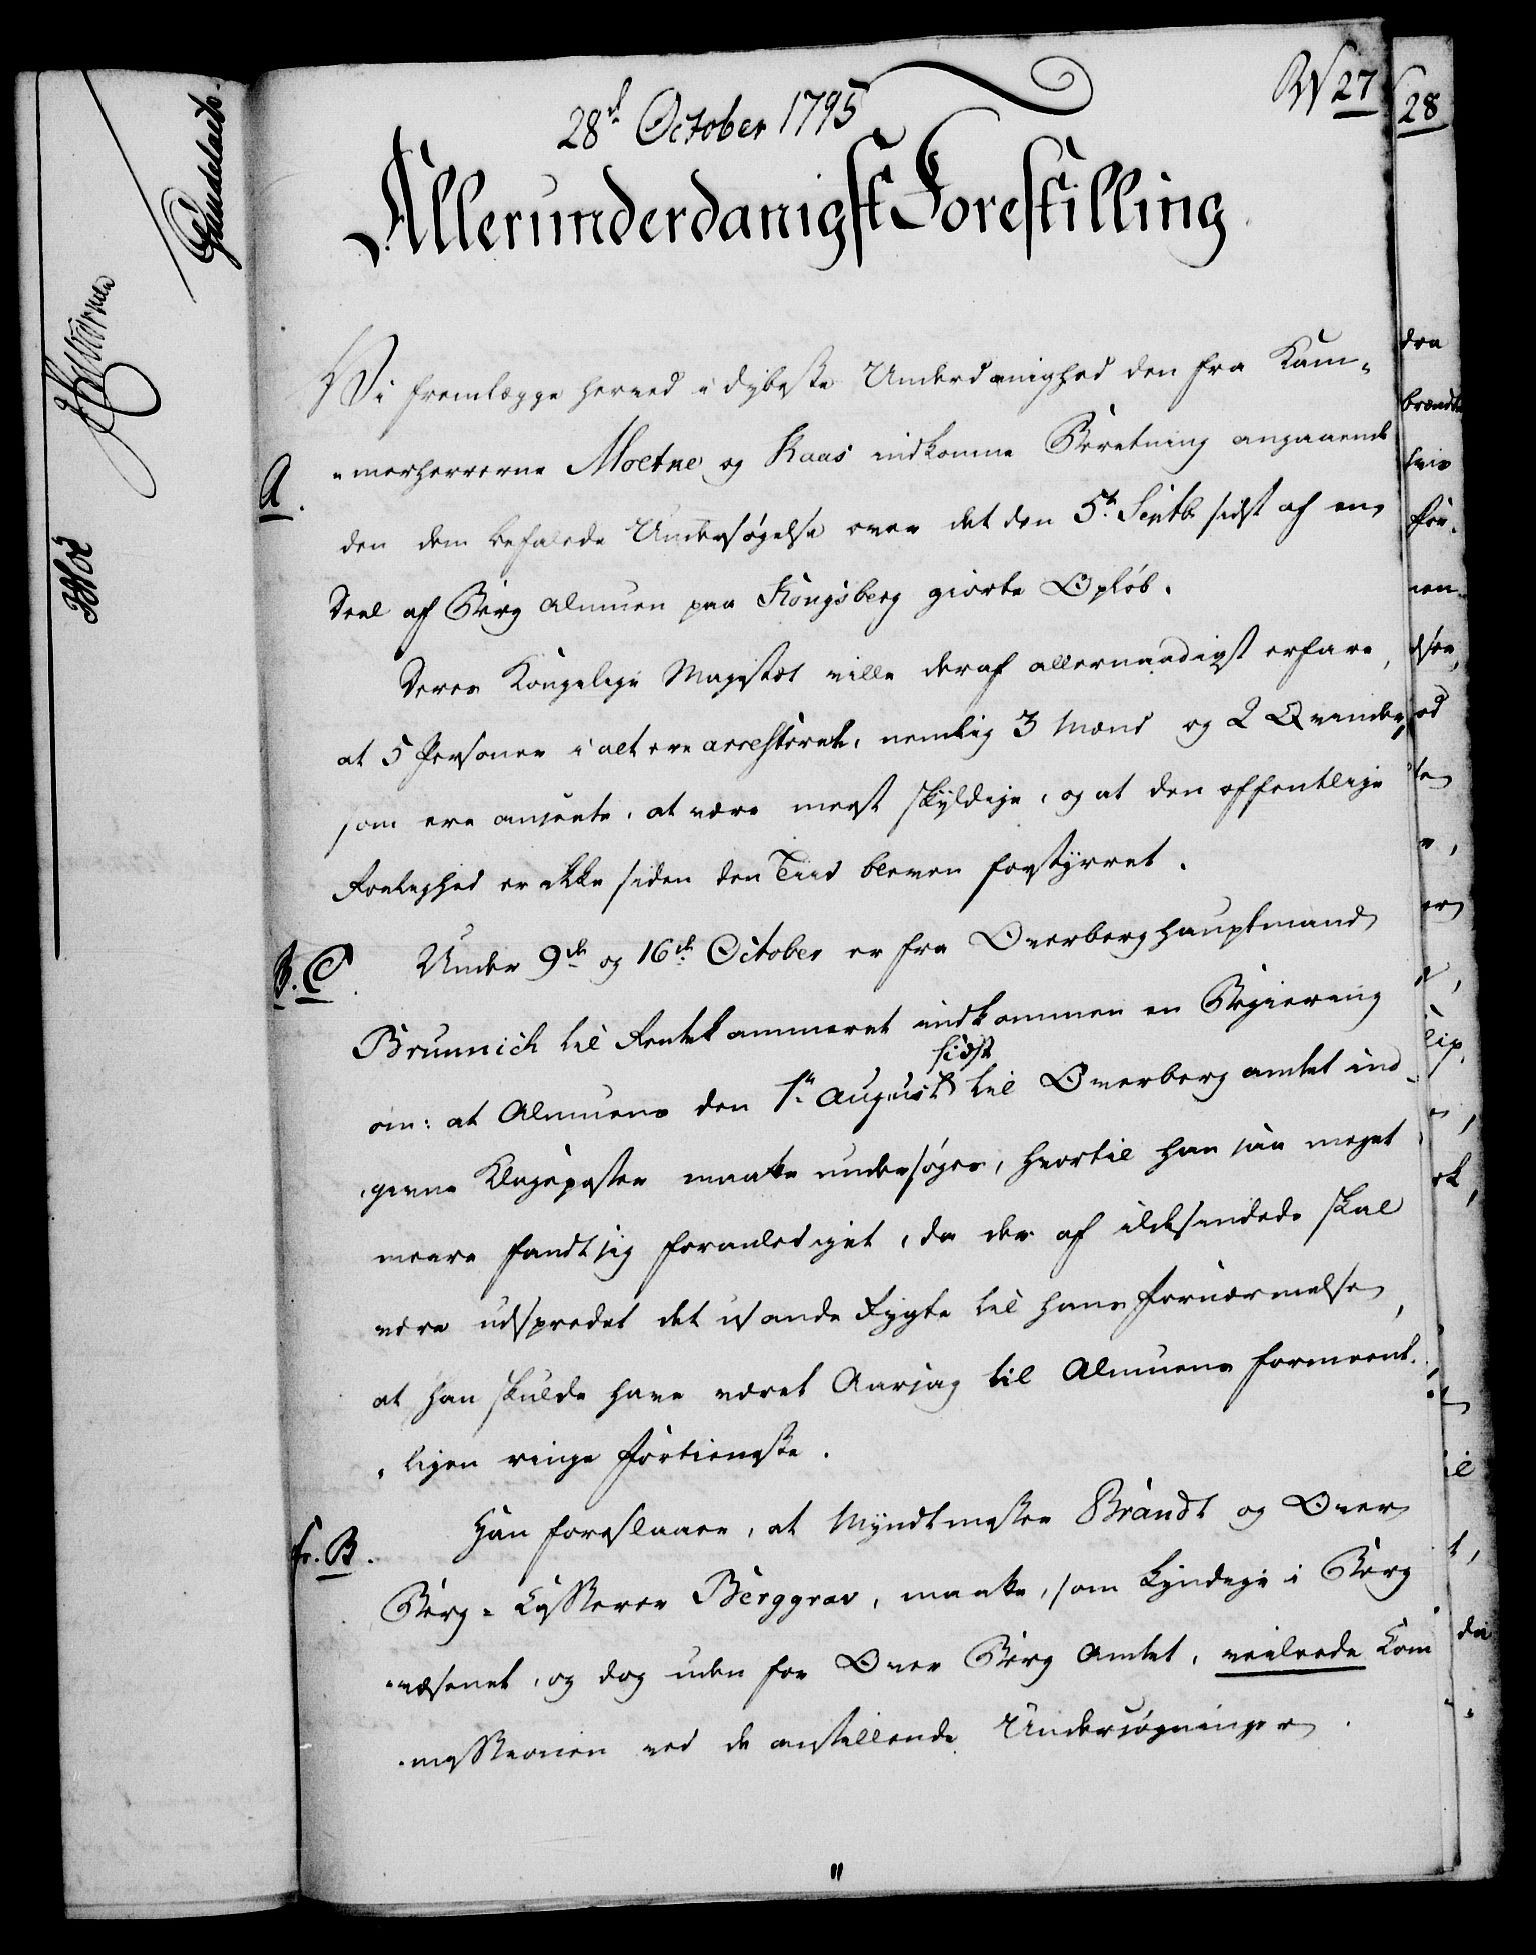 28d October 1795
27
Allerunderdanigst Forestilling
Vi fremlægge herved i dybeste Underdanighed den fra Kam-
A.
-merherrerne Moetne og Kaas indkomne Beretning angaaende
den dem befalede Undersøgelse over det den 5te Septb: sidst af en
Deel af Berg Almuen paa Kongsberg giorte Opløb.
Deres Kongelige Majestæt ville deraf allernaadigst erfare,
at 5 Personer i alt ere arresterede, nemlig 3 Mænd og 2 Qvinder,
som ere anseete, at være meest skyldige, og at den offentlige
Roelighed er ikke siden den Tiid bleven forstyrret.
B. C.
Under 9de og 16de October er fra Overberghauptmand
Brunnich til Rentekammeret indkommen en Begiering
om: at Almuens den 1te August sidst til Overbergamtet ind-
-givne Klageposter maatte undersøges, hvortil han saa meget
meere fandt sig foranlediget, da der af ildesindede skal
være udspredet det usande Rygte til hans Fornærmelse,
at han skulde have været Aarsag til Almuens formeent-
-ligen ringe Fortieneste.
Lr. B.
Han foreslaaer, at Myndtmester Brandt og Over
Berg-Casserer Berggrav, maatte, som kyndige i Berg
-væsenet, og dog uden for Over Berg Amtet, veilede Com
-missionen ved de anstillende Undersøgninger.
28